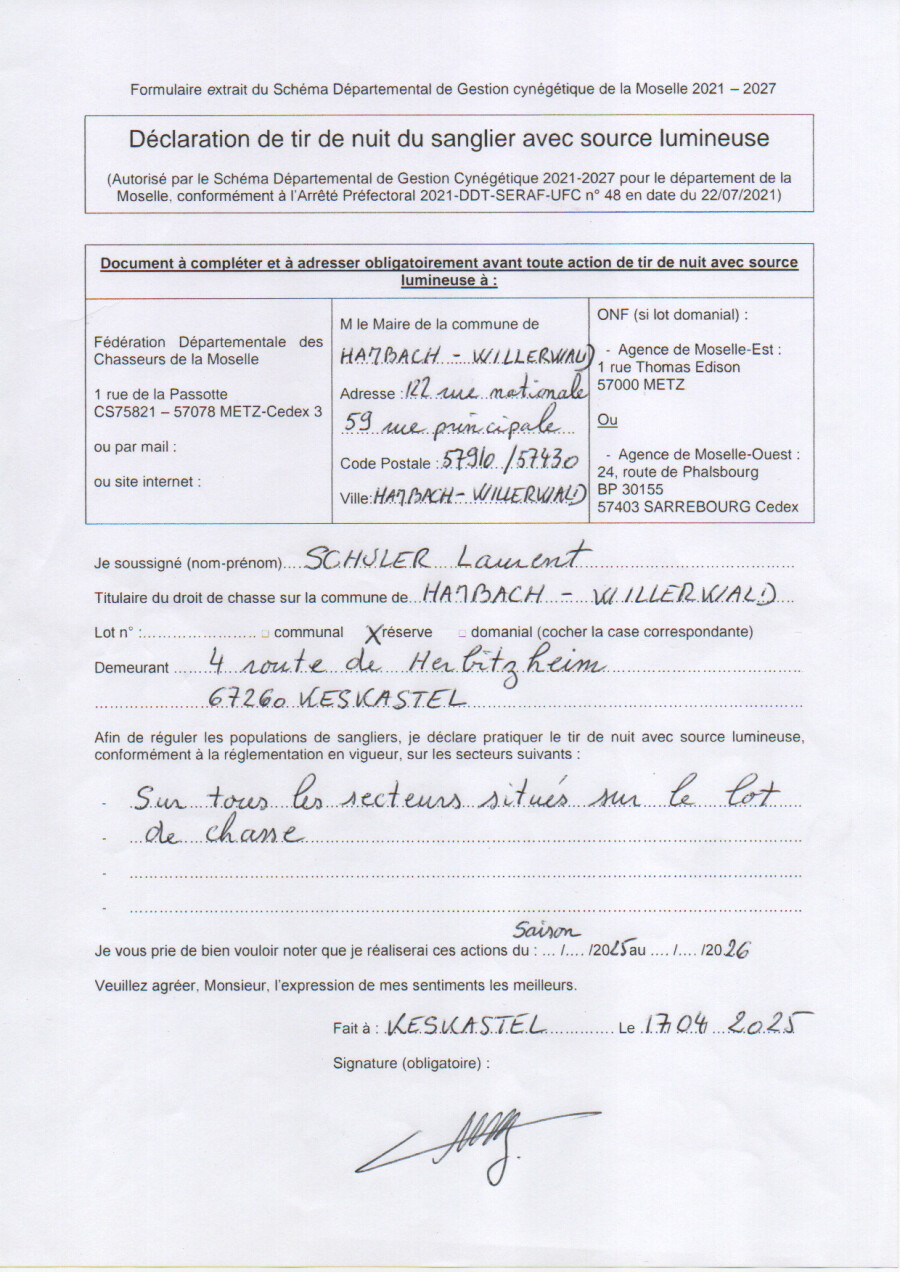 Formulaire extrait du Schéma Départemental de Gestion cynégétique de la Moselle 2021 – 2027
Déclaration de tir de nuit du sanglier avec source lumineuse
(Autorisé par le Schéma Départemental de Gestion Cynégétique 2021-2027 pour le département de la
Moselle, conformément à l'Arrêté Préfectoral 2021-DDT-SERAF-UFC n° 48 en date du 22/07/2021)
Document à compléter et à adresser obligatoirement avant toute action de tir de nuit avec source
lumineuse à :
Fédération Départementale des
Chasseurs de la Moselle
1 rue de la Passotte
CS75821 – 57078 METZ-Cedex 3
ou par mail :
ou site internet :
M le Maire de la commune de
HAMBACH - WILLERWALD
Adresse : 122 rue nationale
59 rue principale
Code Postale : 57910 / 57430
Ville: HAMBACH - WILLERWALD
ONF (si lot domanial) :
- Agence de Moselle-Est :
1 rue Thomas Edison
57000 METZ
Ou
- Agence de Moselle-Ouest :
24, route de Phalsbourg
BP 30155
57403 SARREBOURG Cedex
Je soussigné (nom-prénom).... SCHULER Laurent
Titulaire du droit de chasse sur la commune de... HAMBACH - WILLERWALD
Lot n° :........................ □ communal X réserve □ domanial (cocher la case correspondante)
Demeurant ....... 4 route de Herbitzheim
67260 KESKASTEL
Afin de réguler les populations de sangliers, je déclare pratiquer le tir de nuit avec source lumineuse,
conformément à la réglementation en vigueur, sur les secteurs suivants :
- Sur tous les secteurs situés sur le lot
- de chasse
-
-
Saison
Je vous prie de bien vouloir noter que je réaliserai ces actions du : ... /.... /2025 au .... /.... /2026
Veuillez agréer, Monsieur, l'expression de mes sentiments les meilleurs.
Fait à : KESKASTEL ............. Le 17 04 2025
Signature (obligatoire) :